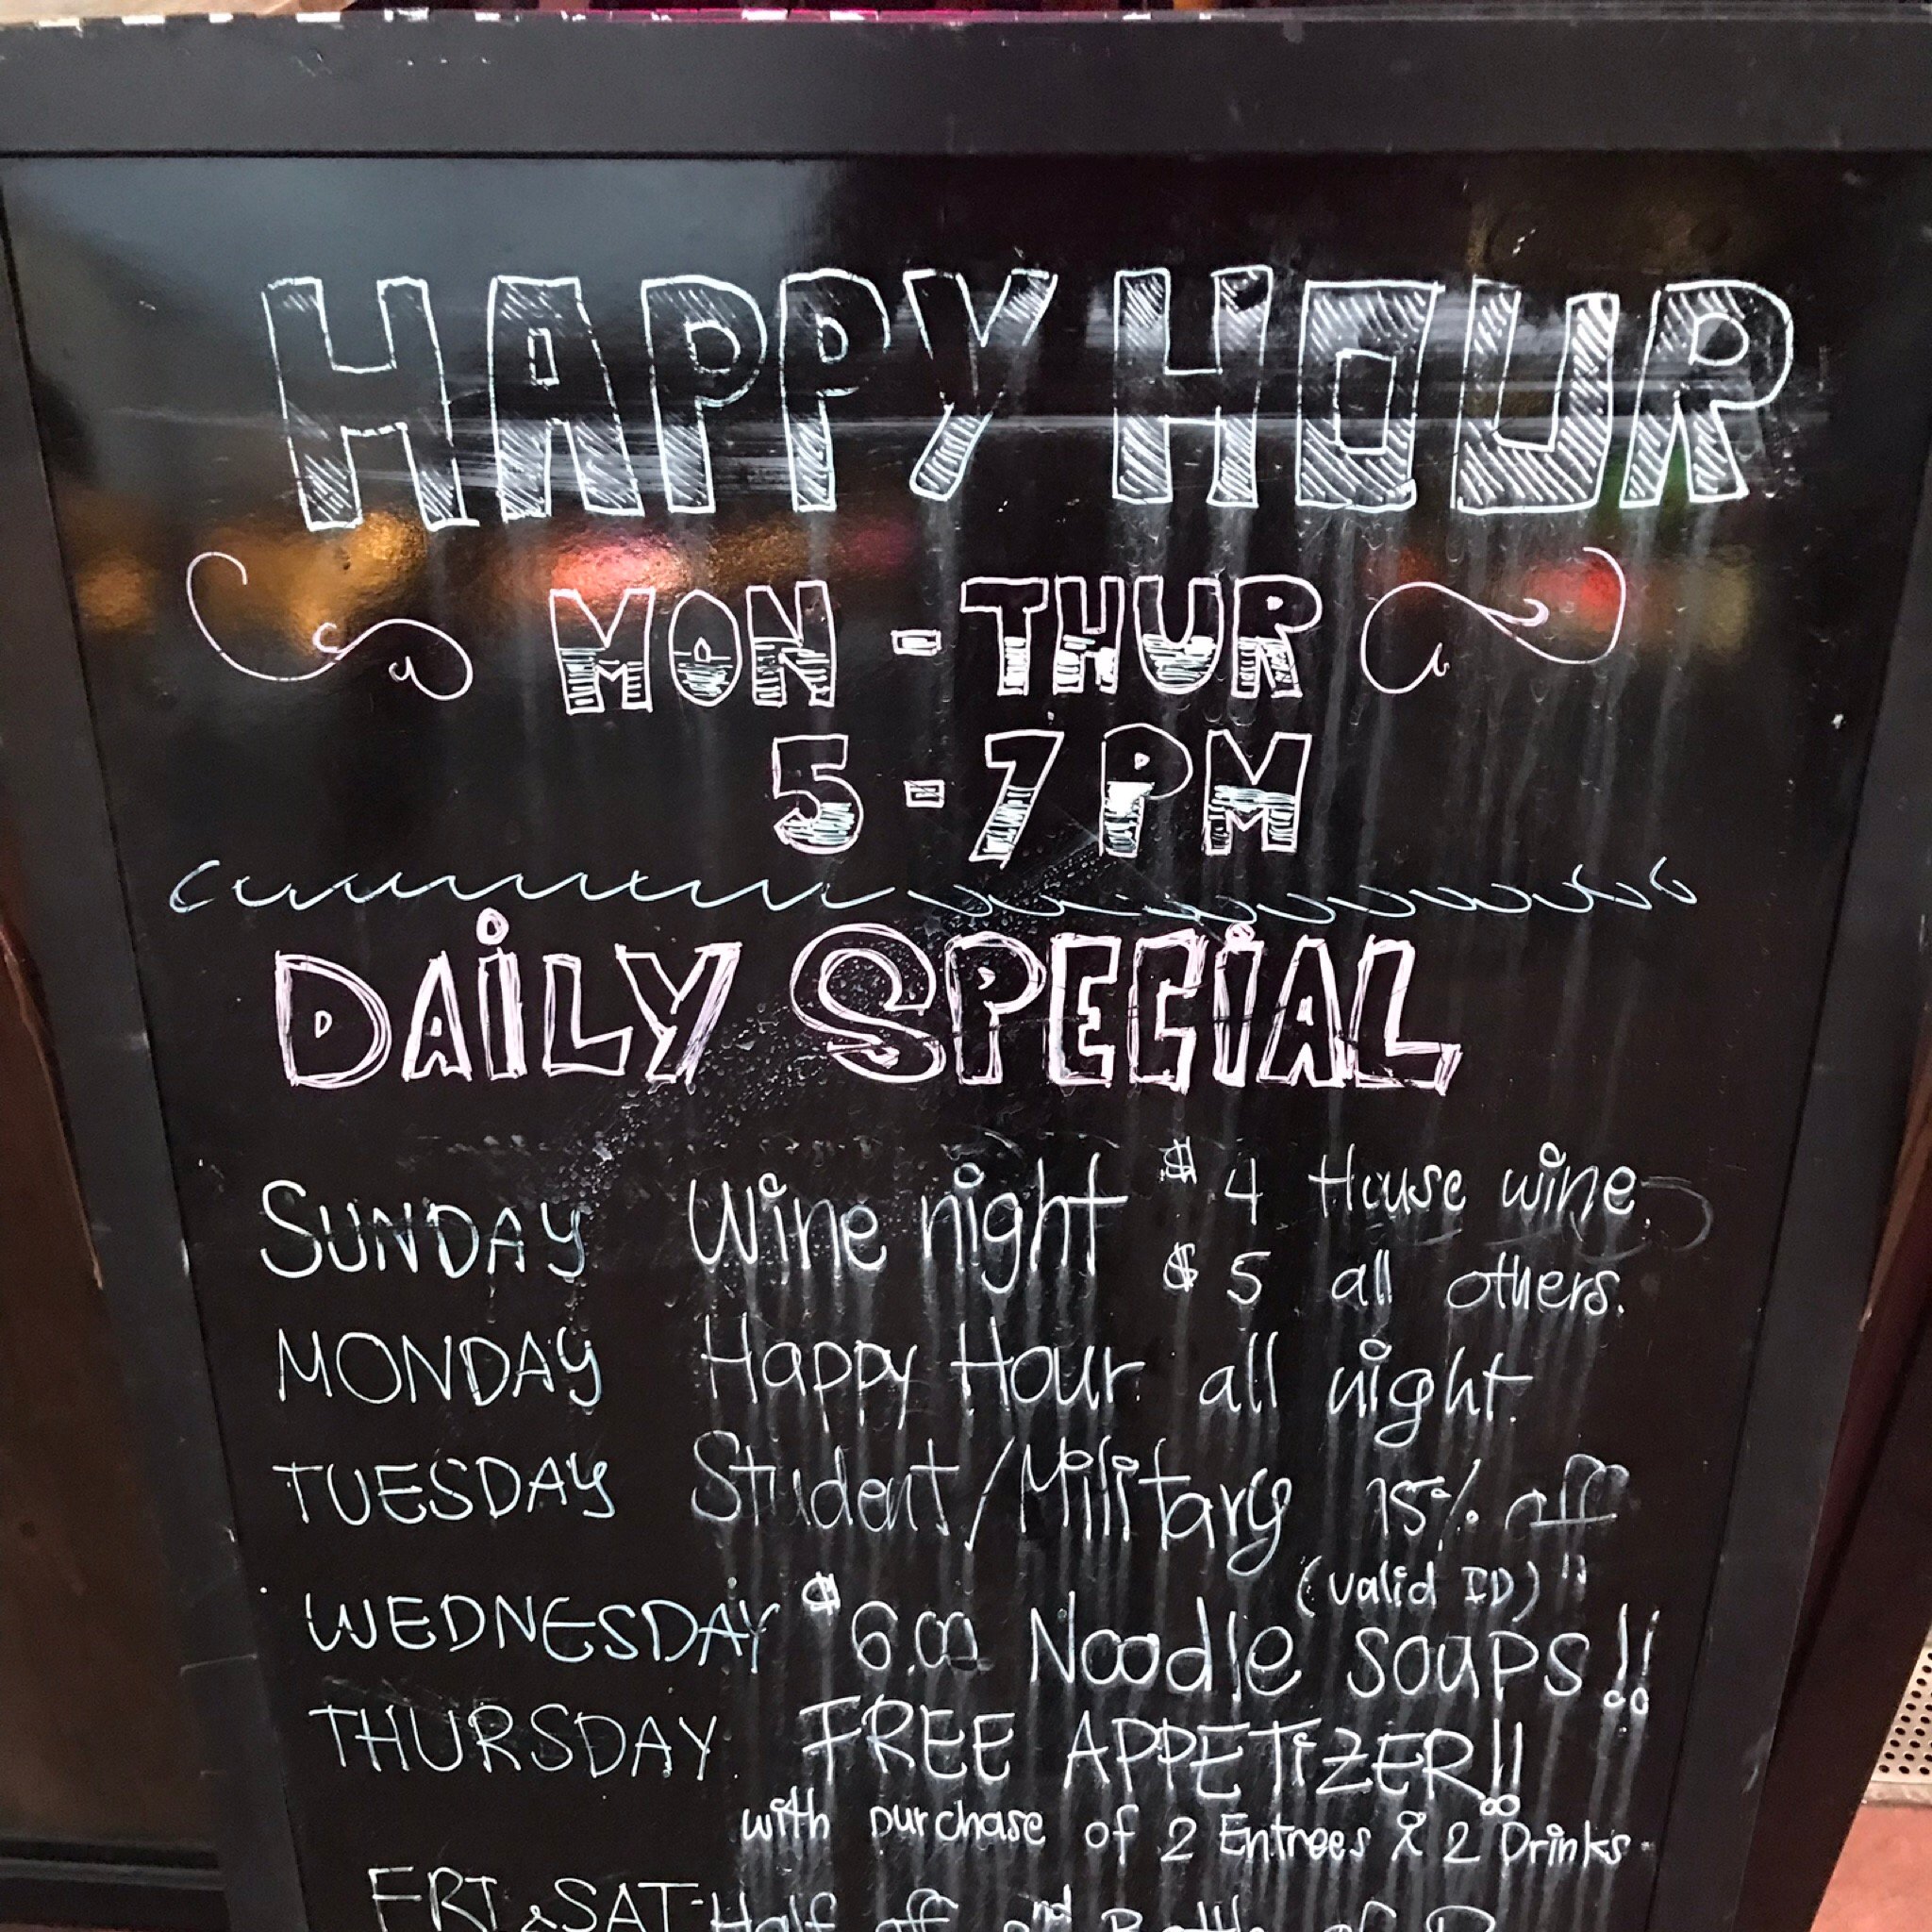 HAPPY HOUR
MON - THUR
5 - 7 PM
DAiLY SPECiAL
SUNDAY Wine night $4 House wine.
$5 all others.
MONDAY Happy Hour all night.
TUESDAY Student/Military 15% off
(valid ID)
WEDNESDAY $6.00 Noodle SOUPS!!
THURSDAY FREE APPETiZER!!
with purchase of 2 Entrees & 2 Drinks.
FRI & SAT- Half off 2nd Bottle of